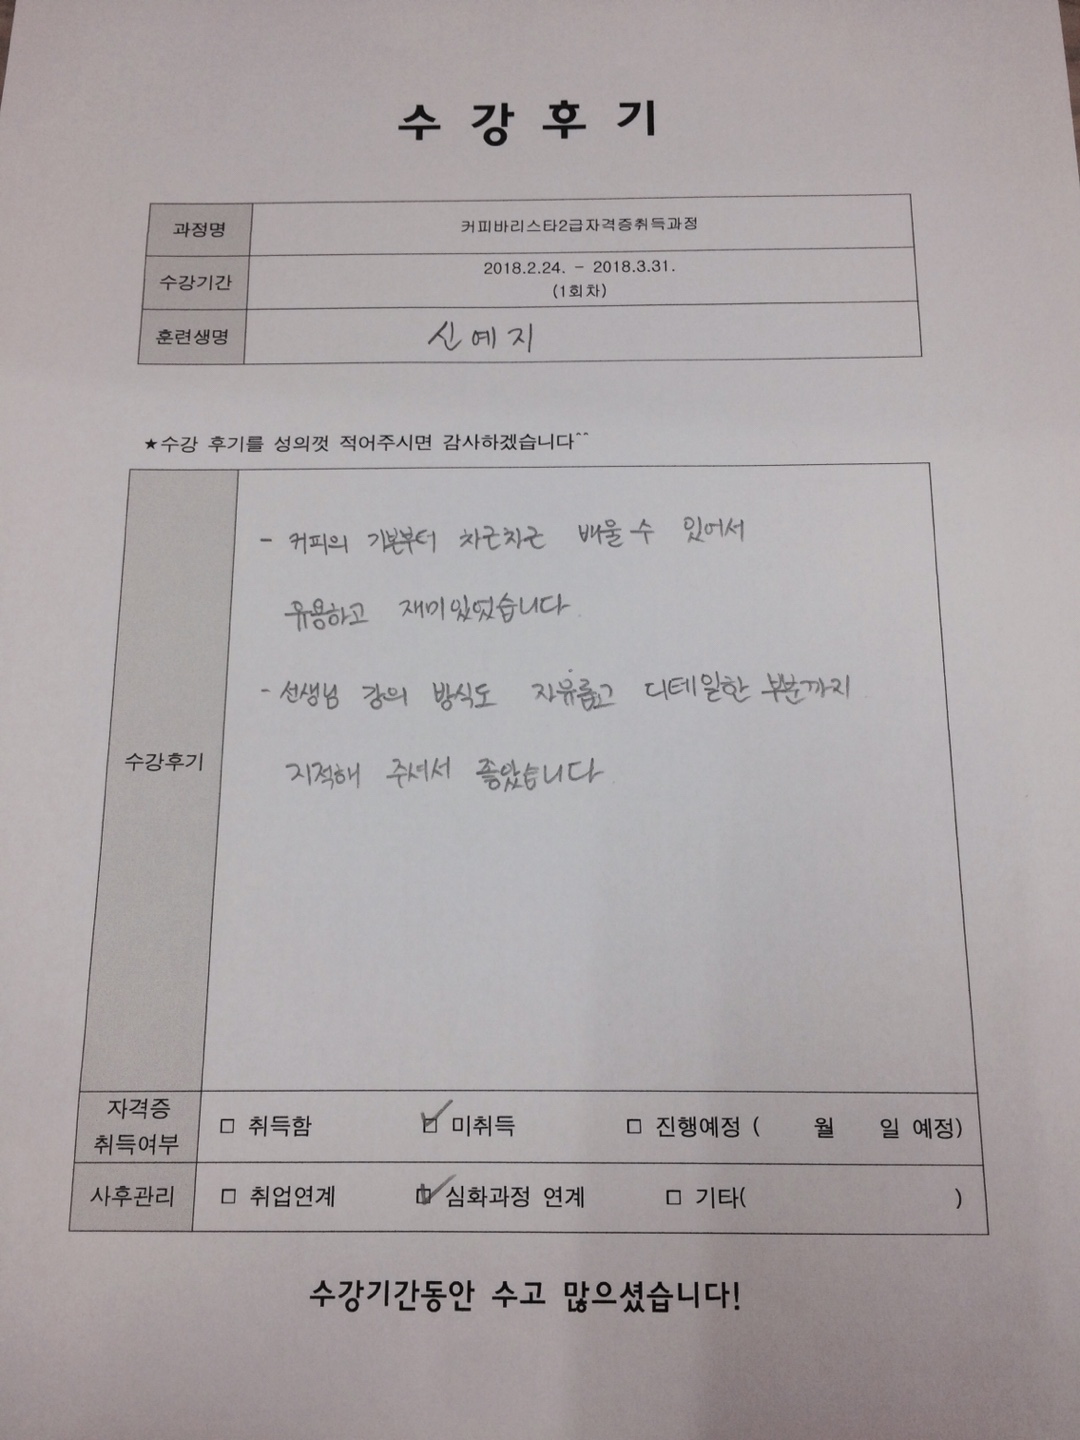 수 강 후 기
과정명 커피바리스타2급자격증취득과정
수강기간 2018.2.24. - 2018.3.31.
(1회차)
훈련생명 신예지
★수강 후기를 성의껏 적어주시면 감사하겠습니다^^
수강후기
- 커피의 기본부터 차근차근 배울 수 있어서
유용하고 재미있었습니다.
- 선생님 강의 방식도 자유롭고 디테일한 부분까지
지적해 주셔서 좋았습니다.
자격증
취득여부
□ 취득함 ☑ 미취득 □ 진행예정 ( 월 일 예정)
사후관리 □ 취업연계 ☑ 심화과정 연계 □ 기타( )
수강기간동안 수고 많으셨습니다!